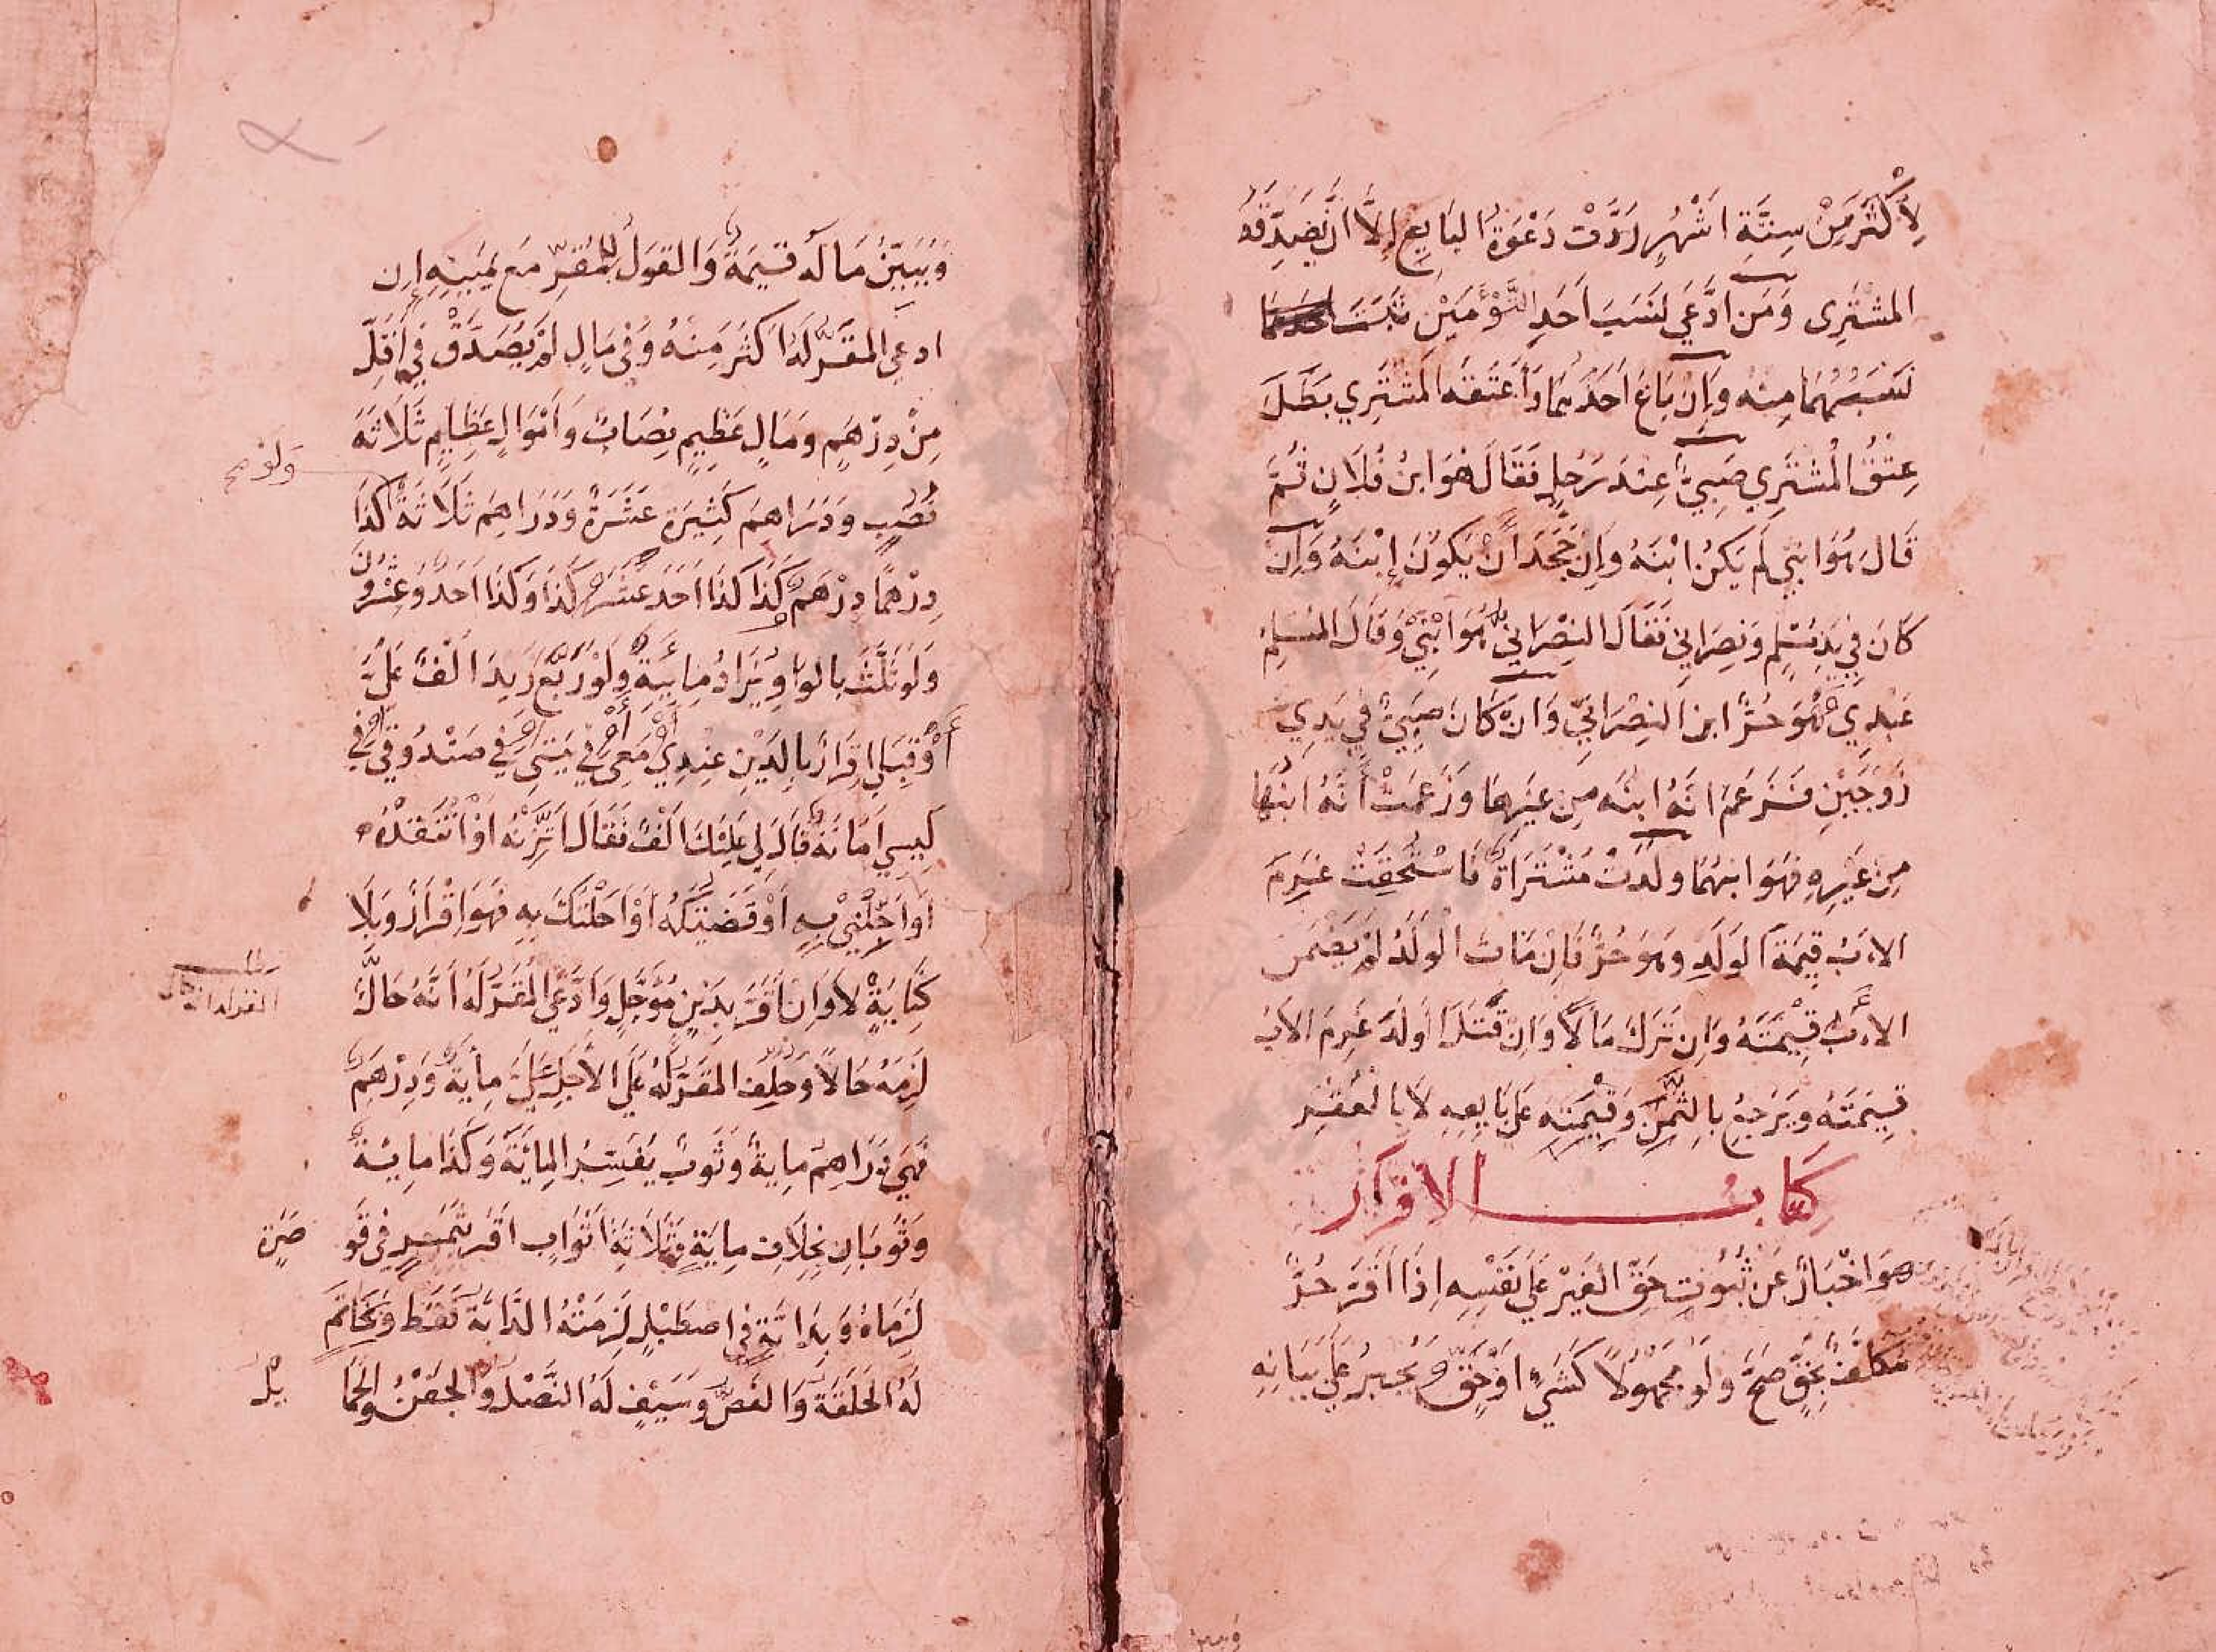 لِأَكْثَرَ مِنْ سِتَّةِ اَشْهُرٍ رَدَّتْ دَعْوَةُ البَايِعِ اِلَّا اَنْ يُصَدِّقَهُ
المشْتَرِى وَمَن ادَّعَي نَسَبَ اَحَدِ التَّوْءَمَيْنِ ثَبَتَ
نَسَبُهُمَا مِنْه وَاِن بَاعَ اَحَدَهُمَا وَاَعْتَقَه المُشْتَرِي بَطَلَ
عِتْقُ المُشْتَرِي صَبِيٌّ عِنْدَ رَجُلٍ فَقَالَ هُوَ ابنُ فُلَانٍ ثُمَّ
قَالَ هُوَ ابْنِي لَم يَكُنِ ابْنَهُ وَاِن جَحَدَ اَنْ يَكُونَ اِبْنَهُ وَاِن
كَانَ فِي يَدِ مُسْلِمٍ وَنصرَانِيٍّ فَقَالَ النِصْرَانِيُّ هُوَ ابْنِيْ وَقَالَ المُسْلِمُ
عَبْدِي فَهُوَ حُرٌّ ابن النِصْرَانِيِّ وَانْ كَانَ صَبِيٌّ فِي يَدِي
زَوْجَيْنِ فَزَعَمَ انَهُ ابنُه مِن غَيْرِهَا وَزَعَمَتْ أَنَّهُ ابنُهَا
مِن غَيْرِهِ فَهُوَ ابنهُمَا ولدَتْ مُشْتَرَاةٌ فَاسْتُحِقَّتْ غَرِمَ
الاءَبُ قِيمَةَ الوَلَدِ وَهوَ حُرٌّ فَاِن مَاتَ الْوَلَدُ لَمْ يَضْمَن
الاءَبُ قِيْمَتَهُ وَاِن تَرَكَ مَالًا وَاِن قُتِلَ الْوَلَدُ غَرِمَ الاَبُ
قِيمَتَهُ وَيَرْجِعُ بِالثَمَنِ وَقِيْمَتِه عَلَى بَايِعِهِ لَا بِالعُقْرِ
كتَابُ الاقرَار
هوَ اخْبَارٌ عَن ثُبُوتِ حَقِّ الغَيْرِ عَلَى نَفْسِهِ اِذَا اَقَرَّ حُرٌّ
مُكَلَّفٌ بِحَقٍّ صَحَّ وَلَو مَجْهُولًا كَشَيْءٍ اَوْ حَقٍّ وَيُجْبَرُ عَلَى بَيَانِهِ
وَيُبَيِّنُ مَالَه قِيمَةٌ وَالقوَلُ للمُقِرِّ مَع يَمِينِهِ اِن
ادعي المقَرُّ لَهُ اَكثَرَ مِنهُ وَفِي مَالٍ لَمْ يُصَدَّقْ فِي اَقَلِّ
مِنْ دِرْهَمٍ وَمَالٍ عَظِيمٍ نِصَابٌ وَاَمْوَالٍ عِظَامٍ ثَلَاثَةُ
نُصُبٍ وَدَرَاهِمَ كَثِيرَةٍ عَشَرَةٌ وَدَرَاهِمَ ثَلَاثَةٌ كَذَا
دِرْهَمًا دِرْهَمٌ كَذَا كَذَا اَحَدَ عَشَرَ كَذَا وَكَذَا اَحَدٌ وَعِشْرُونَ
وَلَو ثَلَّثَ بِالوَاوِ يُزَادُ مِايَةٌ وَلَوْ رَبَّعَ زِيدَ اَلْفٌ عَلَيَّ
أَوْ قِبَلِي اِقرَارٌ بِالدَيْنِ عِنْدِيْ مَعِي فِي بَيْتِي فِي صَنْدُوقِي فِي
كِيسِي اَمَانَةٌ قَالَ لِي عَلَيْكَ اَلْفٌ فَقَالَ اتَّزِنْهُ اَوْ انْتَقِدْهُ
اَو اَجِّلْنِي بِهِ اَوْ قَضَيْتُكَهُ اَوْ اَحَلْتُكَ بِهِ فَهُوَ اِقْرَارٌ وَبِلَا
كِنَايَةٍ لَا وَاِنْ اَقَرَّ بِدَيْنٍ مُؤَجَّلٍ وَادَّعَي المُقَرُّ لَهُ اَنَّهُ حَالٌّ
لَزِمَهُ حَالًا وَحلِّفَ المقَرُّ لَهُ عَلَي الاَجَلِ عَلَيَّ مِايَةٌ وَدِرْهَمٌ
فَهِيَ دَرَاهِمُ مِايةٌ وَثَوبٌ يُفَسِّرُ المِائَةَ وَكَذَا مِايَةٌ
وَثَوبَانِ بِخِلَافِ مِايَةٍ وَثَلَاثَةِ اَثوَابٍ اَقَرَّ بِتَمْرٍ فِي قَو صَرَة
لَزِمَاهُ وَبِدَابَّةٍ فِي اصطَبْلٍ لَزِمَتْهُ الدَابَةُ فَقَط وَبِخَاتَمٍ
لَهُ الحَلَقَةُ وَالفَصُّ وَسَيْفٍ لَهُ النَّصْلُ وَالجَفْنُ وَالحَمَا يلُ